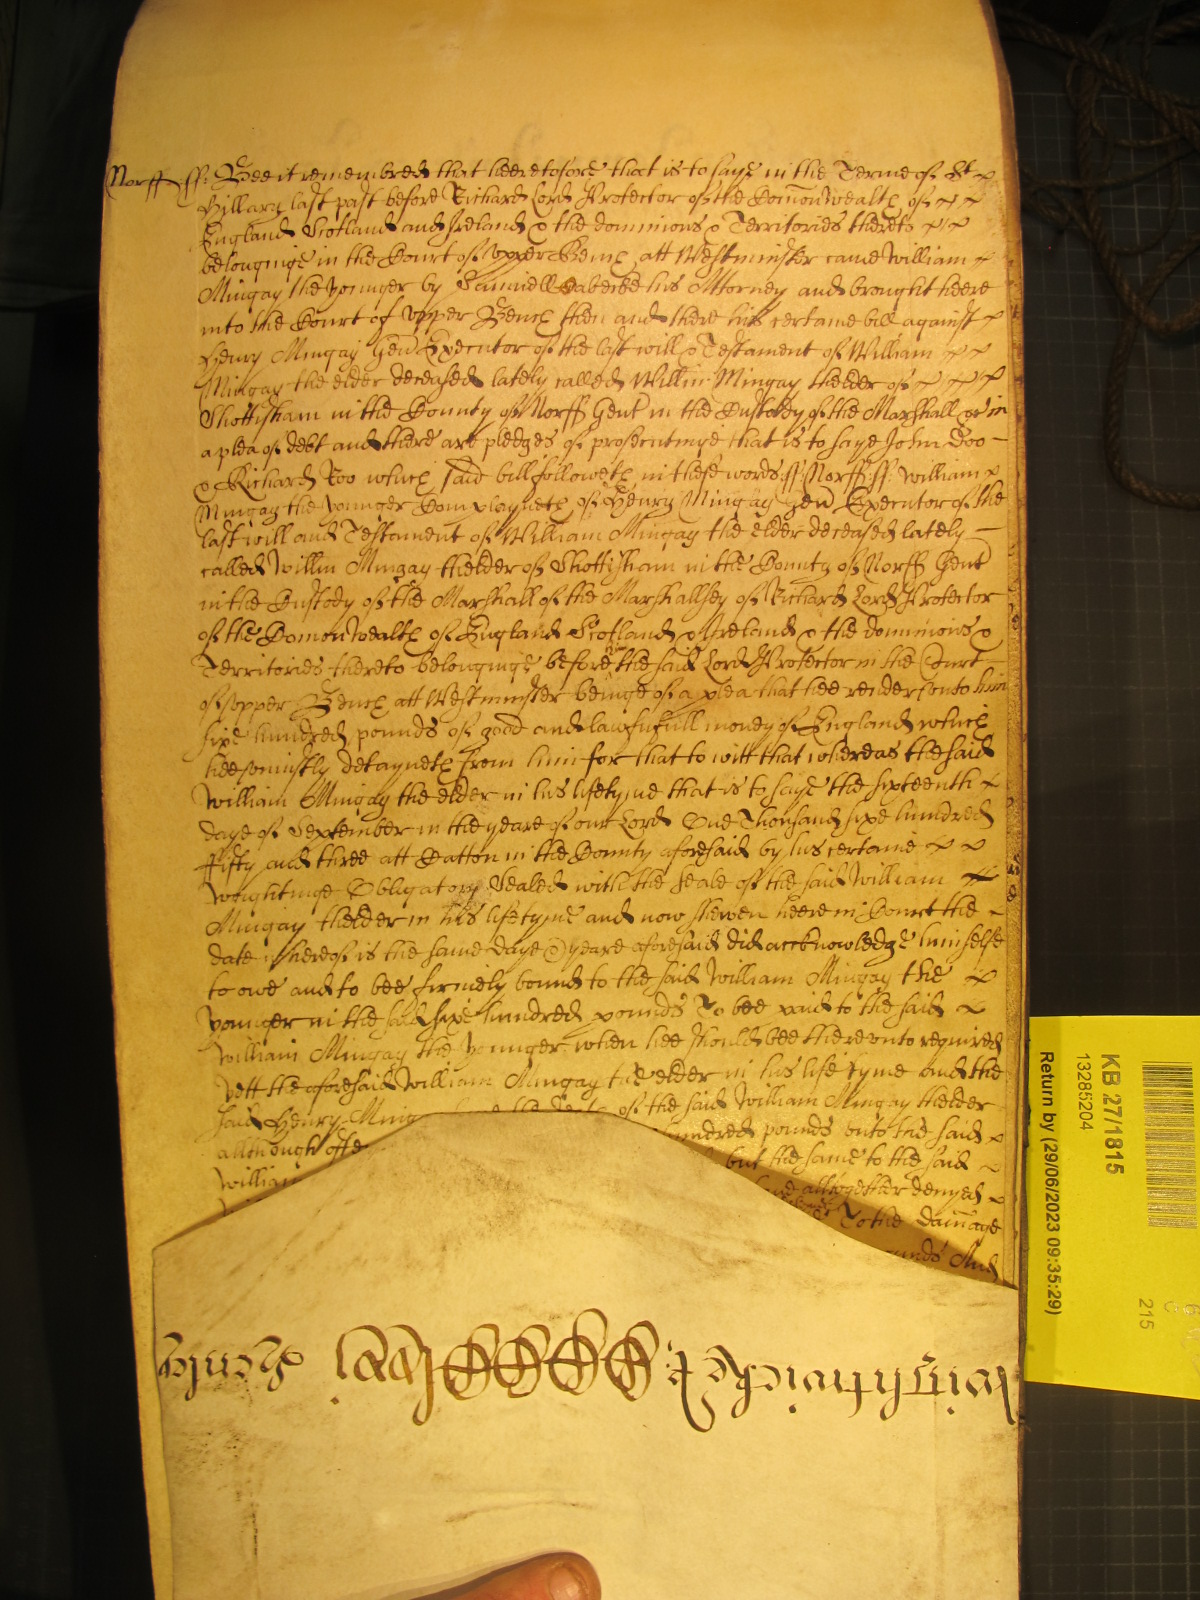 Norff ff: Bee it remembred that heeretofore that is to saye in the Terme of St
Hillary last past before Richard Lord Protector of the Comonwealth of
England Scotland and Ireland & the dominions & Territories thereto
belonginge in the Court of vpper Bench att Westminster came William
Mingay the younger by Samuell his Attorney and brought heere
into the Court of vpper Bench then and there his certaine bill against
Henry Mingay Gen Executor of the last will & Testament of William
Mingay the elder deceased lately called Willm Mingay thelder of
Shottisham in the County of Norff Gent in the Custody of the Marshall &c in
a plea of debt and there are pledges of prosecutinge that is to saye John Doo
& Richard Roo which said bill followeth in these words ff: Norff: ff: William
Mingay the younger Complayneth of Henry Mingay Gen Executor of the
last will and Testament of William Mingay the elder deceased lately
called Willm Mingay thelder of Shottisham in the County of Norff Gent
in the Custody of the Marshall of the Marshallsey of Richard Lord Protector
of the Comonwealth of England Scotland & Ireland & the dominions &
Territories thereto belonginge before the said Lord Protector in the Court
of vpper Bench att Westminster beinge of a plea that hee render vnto him
sixe hundred pounds of good and lawfufull money of England which
hee vniustly detayneth from him for that to witt that whereas the said
William Mingay the elder in his lifetyme that is to saye the sixteenth
daye of September in the yeare of our Lord One Thousand sixe hundred
Fifty and three att Catton in the County aforesaid by his certaine
wrightinge Obligatory Sealed with the Seale of the said William
Mingay thelder in his lifetyme and now shewen heere in Court the
date whereof is the same daye & yeare aforesaid did acknowledge himselfe
to owe and to bee firmely bound to the said William Mingay the
younger in the said sixe hundred pounds To bee paid to the said
William Mingay the younger when hee should bee therevnto required
yett the aforesaid William Mingay the elder in his life tyme and the
said Henry Ming of the said William Mingay thelder
although ofte hundred pounds vnto the said
William but the same to the said
altogether denyed
To the damage
And
KB 27/1815
13285204
Return by (29/06/2023 09:35:29)
215